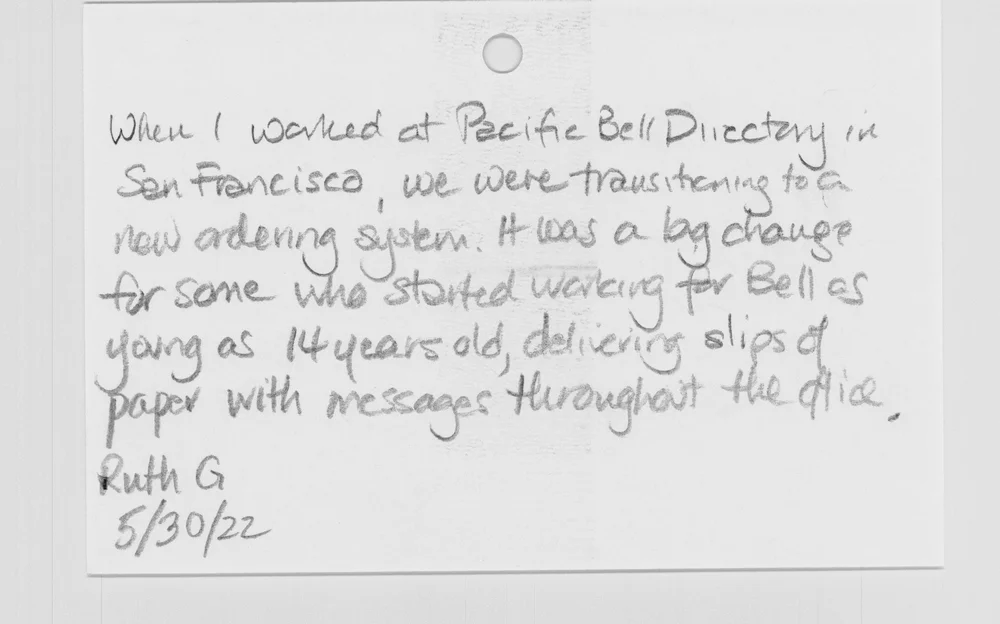 When I worked at Pacific Bell Directory in
San Francisco, we were transitioning to a
new ordering system. It was a big change
for some who started working for Bell as
young as 14 years old, delivering slips of
paper with messages throughout the office.
Ruth G
5/30/22